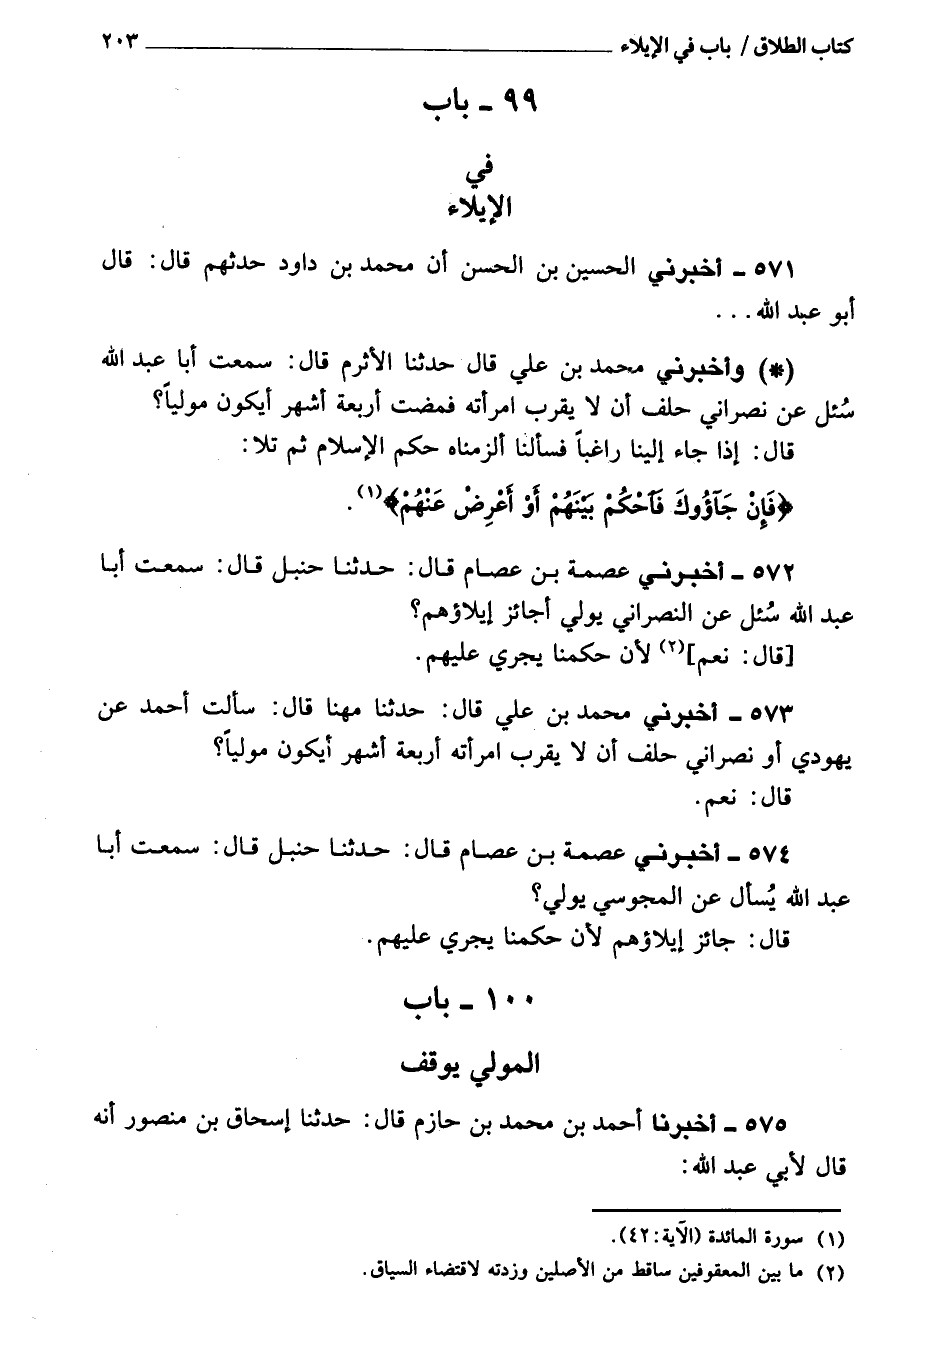 كتاب الطلاق / باب في الإيلاء ٢٠٣
٩٩ ـ باب
في
الإيلاء
٥٧١ ـ أخبرني الحسين بن الحسن أن محمد بن داود حدثهم قال: قال
أبو عبد الله...
(*) وأخبرني محمد بن علي قال حدثنا الأثرم قال: سمعت أبا عبد الله
سُئل عن نصراني حلف أن لا يقرب امرأته فمضت أربعة أشهر أيكون مولياً؟
قال: إذا جاء إلينا راغباً فسألنا ألزمناه حكم الإسلام ثم تلا:
﴿فَإِنْ جَآؤُوكَ فَآحْكُمْ بَيْنَهُمْ أَوْ أَعْرِضْ عَنْهُمْ﴾(١).
٥٧٢ ـ أخبرني عصمة بن عصام قال: حدثنا حنبل قال: سمعت أبا
عبد الله سُئل عن النصراني يولي أجائز إيلاؤهم؟
[قال: نعم](٢) لأن حكمنا يجري عليهم.
٥٧٣ ـ أخبرني محمد بن علي قال: حدثنا مهنا قال: سألت أحمد عن
يهودي أو نصراني حلف أن لا يقرب امرأته أربعة أشهر أيكون مولياً؟
قال: نعم.
٥٧٤ ـ أخبرني عصمة بن عصام قال: حدثنا حنبل قال: سمعت أبا
عبد الله يُسأل عن المجوسي يولي؟
قال: جائز إيلاؤهم لأن حكمنا يجري عليهم.
١٠٠ ـ باب
المولي يوقف
٥٧٥ ـ أخبرنا أحمد بن محمد بن حازم قال: حدثنا إسحاق بن منصور أنه
قال لأبي عبد الله:
(١) سورة المائدة (الآية: ٤٢).
(٢) ما بين المعقوفين ساقط من الأصلين وزدته لاقتضاء السياق.